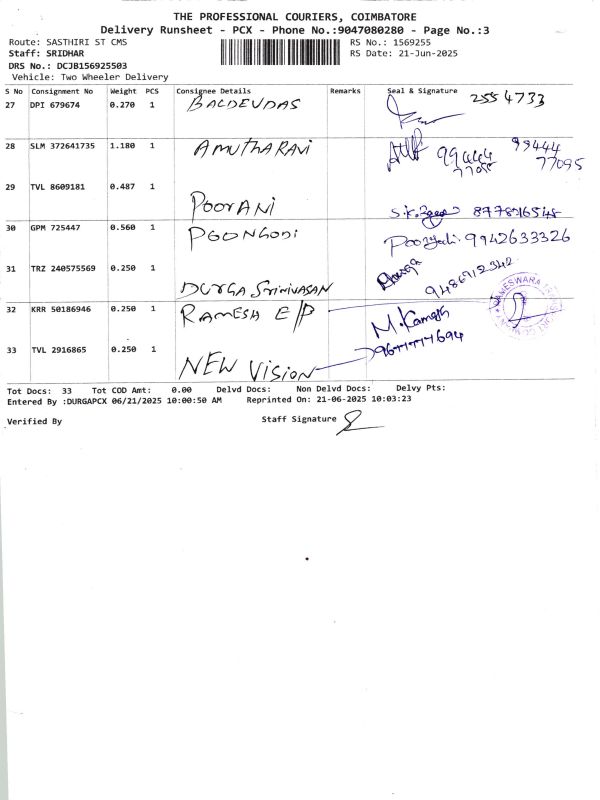 THE PROFESSIONAL COURIERS, COIMBATORE
Delivery Runsheet - PCX - Phone No.:9047080280 - Page No.:3
Route: SASTHIRI ST CMS RS No.: 1569255
Staff: SRIDHAR RS Date: 21-Jun-2025
DRS No.: DCJB156925503
Vehicle: Two Wheeler Delivery
S No Consignment No Weight PCS Consignee Details Remarks Seal & Signature
27 DPI 679674 0.270 1 BALDEVDAS 2554733
28 SLM 372641735 1.180 1 AMUTHA RAVI 99444 77095 99444 77095
29 TVL 8609181 0.487 1 POORANI
30 GPM 725447 0.560 1 POONGODI 9942633326
31 TRZ 240575569 0.250 1 DURGA SRINIVASAN 9486912342
32 KRR 50186946 0.250 1 RAMESH E/P M. Kamesh
33 TVL 2916865 0.250 1 NEW VISION
Tot Docs: 33 Tot COD Amt: 0.00 Delvd Docs: Non Delvd Docs: Delvy Pts:
Entered By :DURGAPCX 06/21/2025 10:00:50 AM Reprinted On: 21-06-2025 10:03:23
Verified By Staff Signature